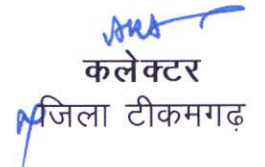 कलेक्टर
जिला टीकमगढ़